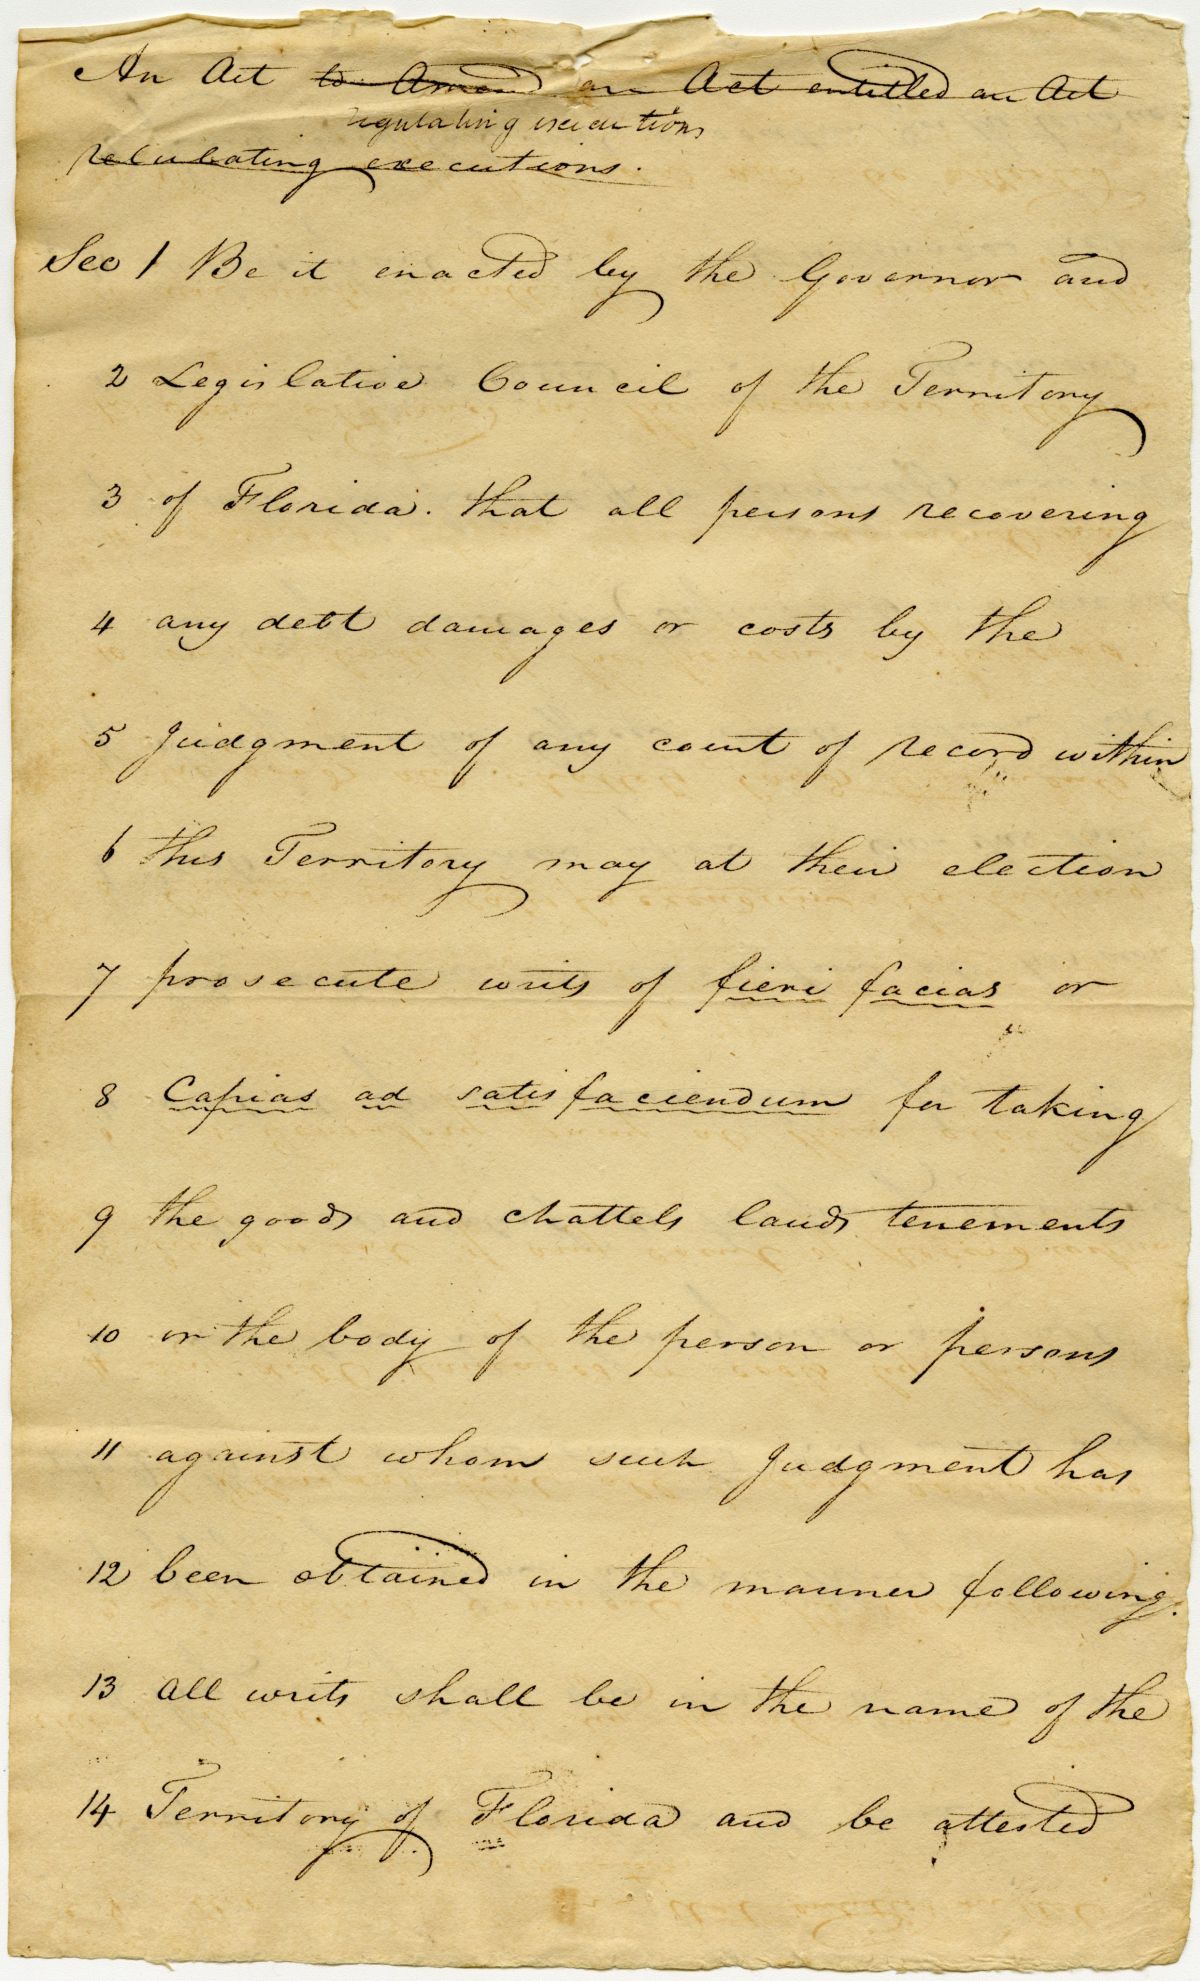 An Act to Amend an Act entitled an Act
regulating executions
relulating executions.
Sec 1 Be it enacted by the Governor and
2 Legislative Council of the Territory
3 of Florida. that all persons recovering
4 any debt damages or costs by the
5 Judgment of any court of record within
6 this Territory may at their election
7 prosecute writs of fieri facias or
8 Capias ad satisfaciendum for taking
9 the goods and chattels lands tenements
10 or the body of the person or persons
11 against whom such Judgment has
12 been obtained in the manner following.
13 all writs shall be in the name of the
14 Territory of Florida and be attested